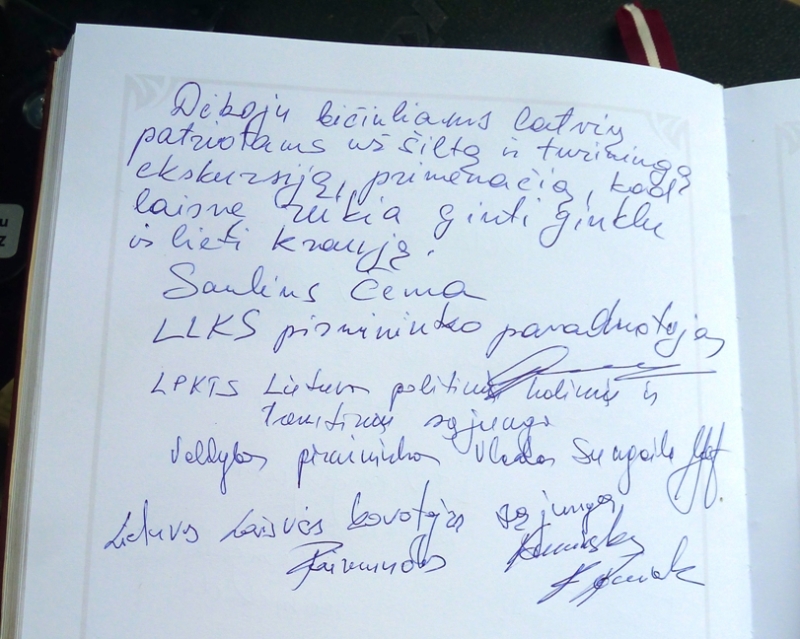 Dėkoju bičiuliams latvių
patriotams už šiltą ir turiningą
ekskursiją, primenačią, kad
laisvę reikia ginti ginklu
ir lieti kraują.
Saulius Čema
LLKS pirmininko pavaduotojas
LPKTS Lietuvos politinių kalinių ir
tremtinių sąjunga
Valdybos pirmininkas Vladas Sungaila
Lietuvos Laisvės kovotojų sąjunga
Raimundas